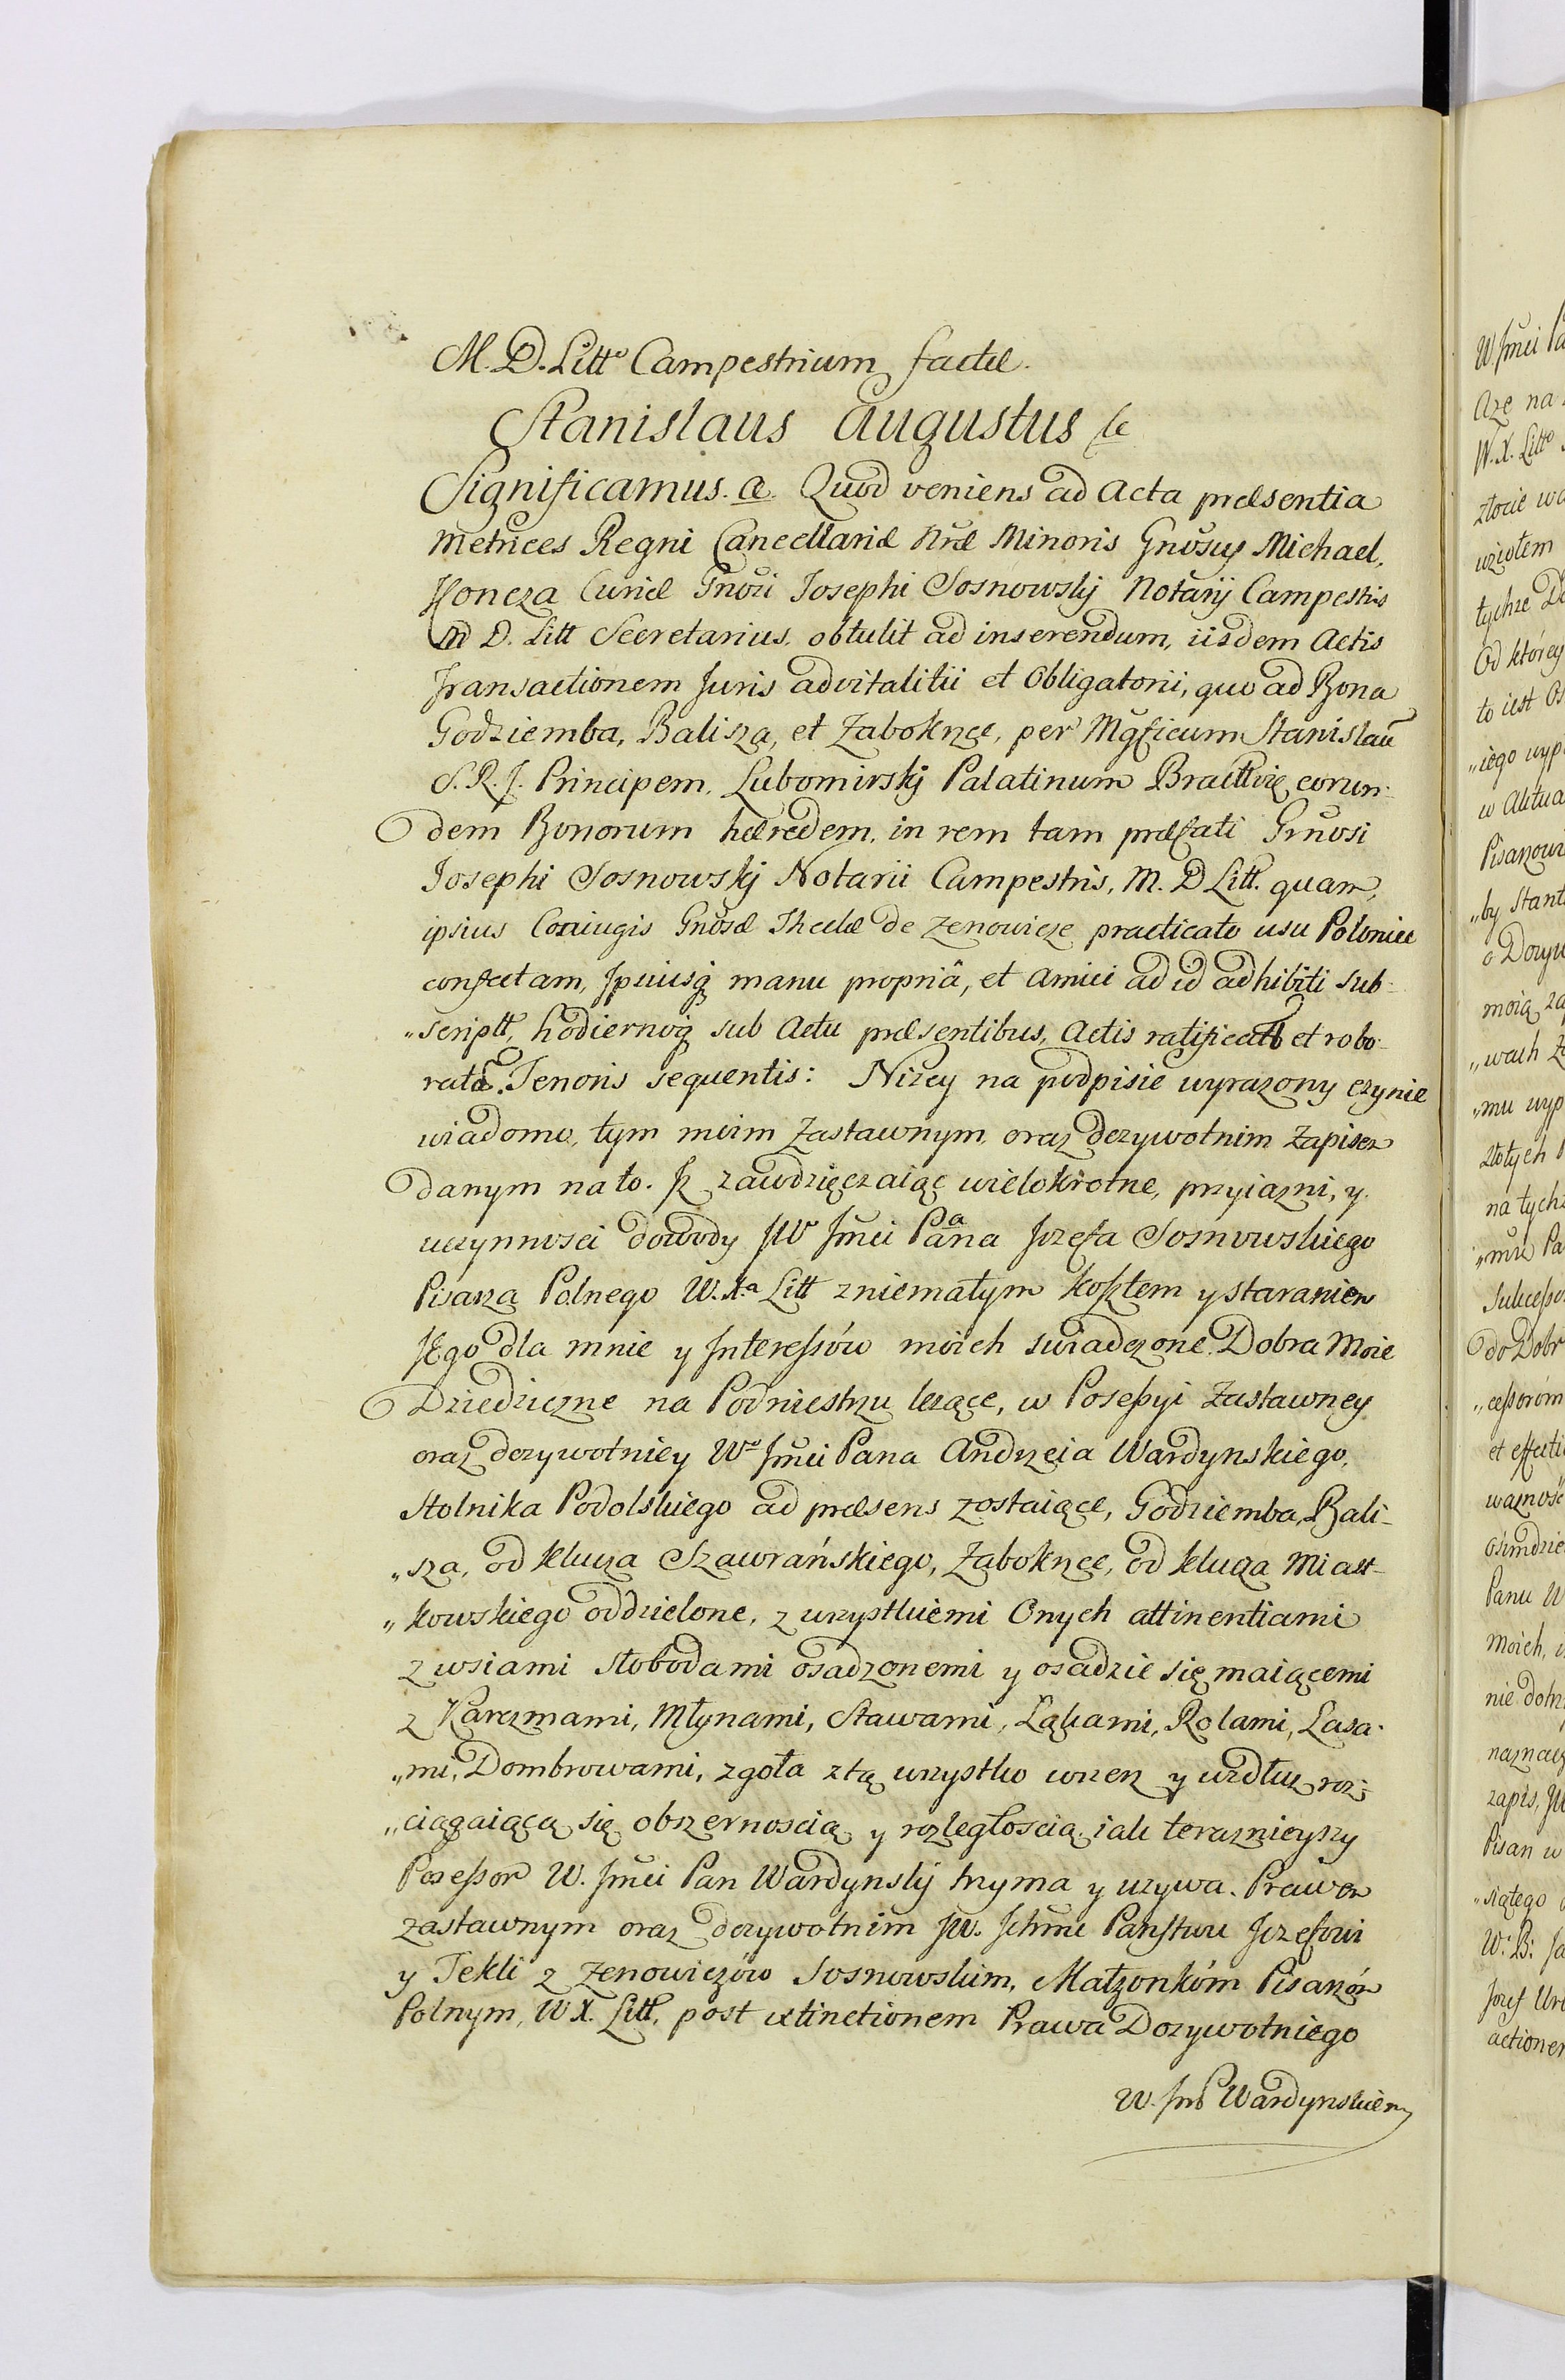 M. D. Litt° Campestrium factæ.
Stanislaus Augustus &c
Significamus. &. Quod veniens ad Acta præsentia
Metrices Regni Cancellariæ Nræ Minoris Gnosus Michael,
Koncza Curiæ Gnosi Josephi Sosnowskij Notarij Campestris
M D. Litt Secretarius, obtulit ad inserendum, iisdem Actis
Transactionem Juris advitalitii et Obligatorii, quo ad Bona
Godziemba, Balisza, et Zabokrzce, per Mgficum Stanislaū
S. R. J. Principem, Lubomirskij Palatinum Bracltvię eorun-
dem Bonorum hæredem, in rem tam præfati Gnosi
Josephi Sosnowskij Notarii Campestris, M. D Litt. quam,
ipsius Coniugis Gnosæ Theclæ de Zenowicze practicato usu Polonico
confectam, Ipsiusq manu propriâ, et Amici ad id adhibiti sub-
„script, hodiernoq sub Actu præsentibus, Actis ratificatā et robo-
ratā. Tenoris Sequentis: Nizey na podpisie wyrazony czynie
wiadomo, tym moim Zastawnym, oraz dozywotnim Zapisem
danym na to. Iz zawdzięczaiąc wielokrotne, przyiazni, y.
uczynnosci dowody JW Jmci Pana Jozefa Sosnowskiego
Pisarza Polnego W. X.a Litt z niemałym kosztem y staraniem
Jego dla mnie y Interessów moich swiadczone. Dobra Moie
Dziedziczne na Podniestrzu lezące, w Posessyi Zastawney
oraz dozywotniey W° Jmci Pana Andrzeia Wardynskiego,
Stolnika Podolskiego ad præsens zostaiące, Godziemba, Bali-
„sza, od klucza Szawrańskiego, Zabokrzce, od klucza Miast-
„kowskiego oddzielone, z wszystkiemi Onych attinentiami
z wsiami słobodami osadzonemi y osadzić się maiącemi
z Karczmami, Młynami, Stawami, Łąkami, Rolami, Lasa-
„mi, Dombrowami, zgoła z tą wszystko wszerz y wzdłuz roz-
„ciągaiącą się obszernoscią y rozległoscią, iak teraznieyszy
Posessor W. Jmci Pan Wardynskij trzyma y uzywa. Prawem
zastawnym oraz dozywotnim JW. Ichmc Panstwu Jozefowi
y Tekli z Zenowiczów Sosnowskim, Małzonkóm Pisarzóm
Polnym, W X. Litt, post extinctionem Prawa Dozywotniego
W. Jmb Wardynskiem